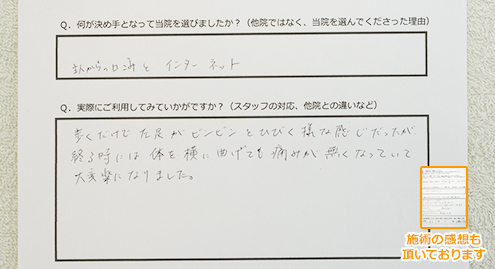 Q．何が決め手となって当院を選びましたか？（他院ではなく、当院を選んでくださった理由）
友人からの口コミと インターネット
Q．実際にご利用してみていかがですか？（スタッフの対応、他院との違いなど）
歩くだけで 左足が ビンビン とひびく様な感じだったが
終る時には 体を横に曲げても 痛みが 無くなっていて
大変楽になりました。
施術の感想も
頂いております